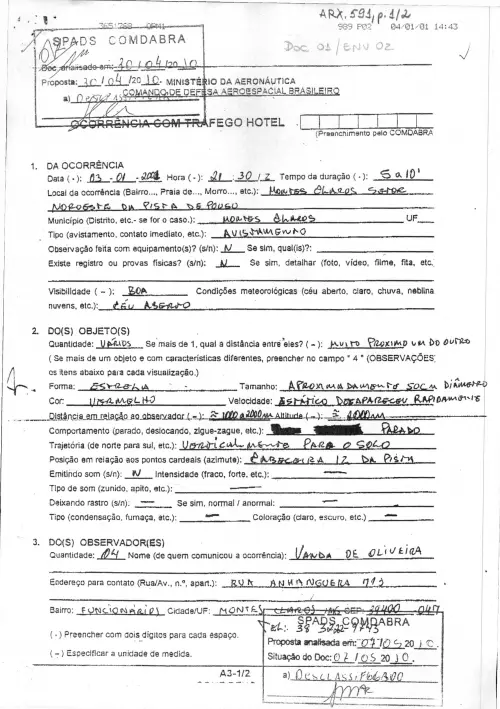 ARX. 591, p. 1/2
989 P02 04/01/01 14:43
SPADS COMDABRA
Doc 01 / ENV 02
Doc. analisado em: 30 / 04 /20 10
Proposta: 30 / 04 /20 10. MINISTÉRIO DA AERONÁUTICA
COMANDO DE DEFESA AEROESPACIAL BRASILEIRO
a)
OCORRÊNCIA COM TRÁFEGO HOTEL -
(Preenchimento pelo COMDABRA
1. DA OCORRÊNCIA
Data ( - ): 03 - 01 - 2001 Hora ( - ): 21 : 30 / Z Tempo da duração ( - ): 5 a 10'
Local da ocorrência (Bairro..., Praia de..., Morro..., etc.): MONTES CLAROS SETOR
NOROESTE DA PISTA DE POUSO
Município (Distrito, etc.- se for o caso.): MONTES CLAROS UF
Tipo (avistamento, contato imediato, etc.): AVISTAMENTO
Observação feita com equipamento(s)? (s/n): N Se sim, qual(is)?:
Existe registro ou provas físicas? (s/n): N Se sim, detalhar (foto, vídeo, filme, fita, etc.
Visibilidade ( ~ ): BOA Condições meteorológicas (céu aberto, claro, chuva, neblina
nuvens, etc.): CÉU ABERTO
2. DO(S) OBJETO(S)
Quantidade: VÁRIOS Se mais de 1, qual a distância entre eles? ( ~ ): MUITO PROXIMO UM DO OUTRO
( Se mais de um objeto e com características diferentes, preencher no campo " 4 " (OBSERVAÇÕES)
os itens abaixo para cada visualização.)
Forma: ESTRELA Tamanho: APROXIMADAMENTE 50CM DIÂMETRO
Cor: VERMELHO Velocidade: ESTÁTICO DESAPARECEU RAPIDAMENTE
Distância em relação ao observador ( ~ ): ≅ 1000 a 2000m Altitude ( ~ ): ≅ 1000m
Comportamento (parado, deslocando, zigue-zague, etc.): PARADO
Trajetória (de norte para sul, etc.): VERTICALMENTE PARA O SOLO
Posição em relação aos pontos cardeais (azimute): CABECEIRA 12 DA PISTA
Emitindo som (s/n): N Intensidade (fraco, forte, etc.):
Tipo de som (zunido, apito, etc.):
Deixando rastro (s/n): — Se sim, normal / anormal: —
Tipo (condensação, fumaça, etc.): — Coloração (claro, escuro, etc.) —
3. DO(S) OBSERVADOR(ES)
Quantidade: 04 Nome (de quem comunicou a ocorrência): VANDA DE OLIVEIRA
Endereço para contato (Rua/Av., n.º, apart.): RUA ANHANGUERA 713
Bairro: FUNCIONÁRIOS Cidade/UF: MONTES CLAROS /MG CEP: 39400 - 047
SPADS COMDABRA
( - ) Preencher com dois dígitos para cada espaço.
Proposta analisada em: 07 / 05 20 10.
( ~ ) Especificar a unidade de medida.
Situação do Doc: 07 / 05 20 10.
A3-1/2
a) DESCLASSIFICADO